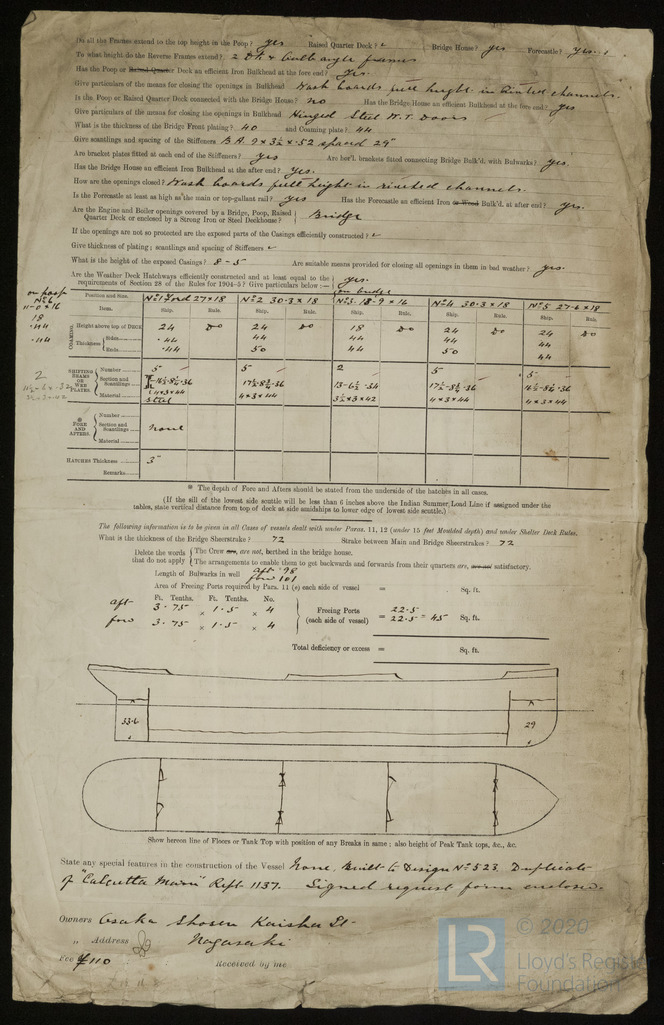 Do all the Frames extend to the top height in the Poop? yes Raised Quarter Deck? Bridge House? yes Forecastle? yes
To what height do the Reverse Frames extend? 2 Dk & bulb angle frames
Has the Poop or Raised Quarter Deck an efficient Iron Bulkhead at the fore end? Yes.
Give particulars of the means for closing the openings in Bulkhead Wash boards full height in riveted channels.
Is the Poop or Raised Quarter Deck connected with the Bridge House? no Has the Bridge House an efficient Bulkhead at the fore end? yes
Give particulars of the means for closing the openings in Bulkhead Hinged Steel W.T. Doors
What is the thickness of the Bridge Front plating? 40 and Coaming plate? 44
Give scantlings and spacing of the Stiffeners B.A. 9 x 3½ x .52 spaced 29"
Are bracket plates fitted at each end of the Stiffeners? Yes Are hor'l. brackets fitted connecting Bridge Bulk'd. with Bulwarks? yes
Has the Bridge House an efficient Iron Bulkhead at the after end? yes.
How are the openings closed? Wash boards full height in riveted channels.
Is the Forecastle at least as high as the main or top-gallant rail? yes Has the Forecastle an efficient Iron or Wood Bulk'd. at after end? yes.
Are the Engine and Boiler openings covered by a Bridge, Poop, Raised Quarter Deck or enclosed by a Strong Iron or Steel Deckhouse? Bridge
If the openings are not so protected are the exposed parts of the Casings efficiently constructed?
Give thickness of plating; scantlings and spacing of Stiffeners
What is the height of the exposed Casings? 8-5 Are suitable means provided for closing all openings in them in bad weather? yes.
Are the Weather Deck Hatchways efficiently constructed and at least equal to the requirements of Section 28 of the Rules for 1904-5? Give particulars below :— yes.
on bridge
on poop
No 6
11-0 x 16
18
.44
.44
Position and Size. No 1 Ford 27 x 18 No 2 30.3 x 18 No 3 18-9 x 16 No 4 30.3 x 18 No 5 27-6 x 18
Item. Ship. Rule. Ship. Rule. Ship. Rule. Ship. Rule. Ship. Rule.
COAMINGS Height above top of DECK 24 Do 24 Do 18 Do 24 Do 24 Do
Thickness Sides .44 44 44 44 44
Ends .44 50 44 50 44
2
SHIFTING BEAMS OR WEB PLATES Number 5 5 2 5 5
Section and Scantlings
Material steel 4 x 3 x 44 3½ x 3 x 42 4 x 3 x 44 4 x 3 x 44
* FORE AND AFTERS. Number
Section and Scantlings none
Material
HATCHES Thickness 3"
Remarks
* The depth of Fore and Afters should be stated from the underside of the hatches in all cases.
(If the sill of the lowest side scuttle will be less than 6 inches above the Indian Summer Load Line if assigned under the
tables, state vertical distance from top of deck at side amidships to lower edge of lowest side scuttle.)
The following information is to be given in all Cases of vessels dealt with under Paras. 11, 12 (under 15 feet Moulded depth) and under Shelter Deck Rules.
What is the thickness of the Bridge Sheerstrake? 72 Strake between Main and Bridge Sheerstrakes? 72
Delete the words that do not apply The Crew are, are not, berthed in the bridge house.
The arrangements to enable them to get backwards and forwards from their quarters are, are not satisfactory.
Length of Bulwarks in well aft 98
forw 101
Area of Freeing Ports required by Para. 11 (e) each side of vessel = Sq. ft.
Ft. Tenths. Ft. Tenths. No.
aft 3.75 x 1.5 x 4
forw 3.75 x 1.5 x 4
Freeing Ports (each side of vessel) = 22.5
22.5 = 45 Sq. ft.
Total deficiency or excess = Sq. ft.
33.6
29
Show hereon line of Floors or Tank Top with position of any Breaks in same; also height of Peak Tank tops, &c., &c.
State any special features in the construction of the Vessel None. Built to Design No 523. Duplicate
of "Calcutta Maru" Rept 1137. Signed request form enclosed.
Owners Osaka Shosen Kaisha Ld.
" Address Nagasaki
Fee ¥110 Received by me
© 2020
LR
Lloyd's Register
Foundation